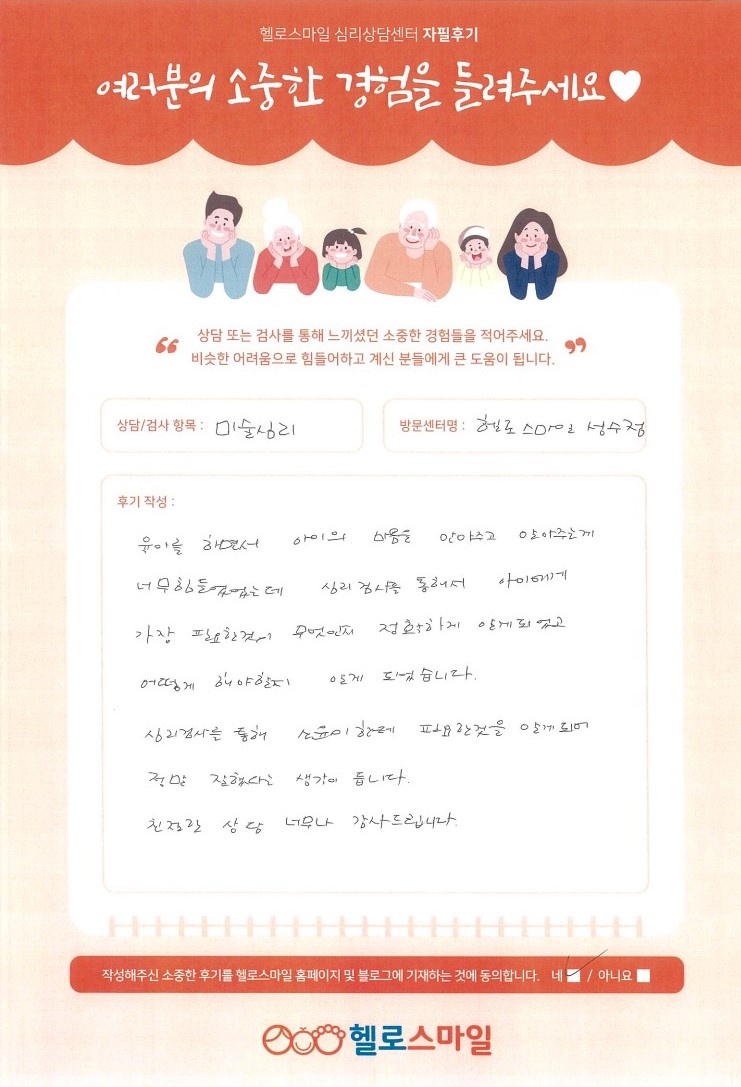 헬로스마일 심리상담센터 자필후기
여러분의 소중한 경험을 들려주세요♥
“ 상담 또는 검사를 통해 느끼셨던 소중한 경험들을 적어주세요. ”
비슷한 어려움으로 힘들어하고 계신 분들에게 큰 도움이 됩니다.
상담/검사 항목 : 미술심리
방문센터명 : 헬로스마일 성수점
후기 작성 :
육아를 하면서 아이의 마음을 안아주고 알아주는게
너무힘들었었는데 심리검사를 통해서 아이에게
가장 필요한것이 무엇인지 정확하게 알게되었고
어떻게 해야할지 알게 되었습니다.
심리검사를 통해 소윤이한테 필요한것을 알게되어
정말 잘했다는 생각이 듭니다.
친절한 상담 너무나 감사드립니다.
작성해주신 소중한 후기를 헬로스마일 홈페이지 및 블로그에 기재하는 것에 동의합니다. 네 / 아니요
헬로스마일